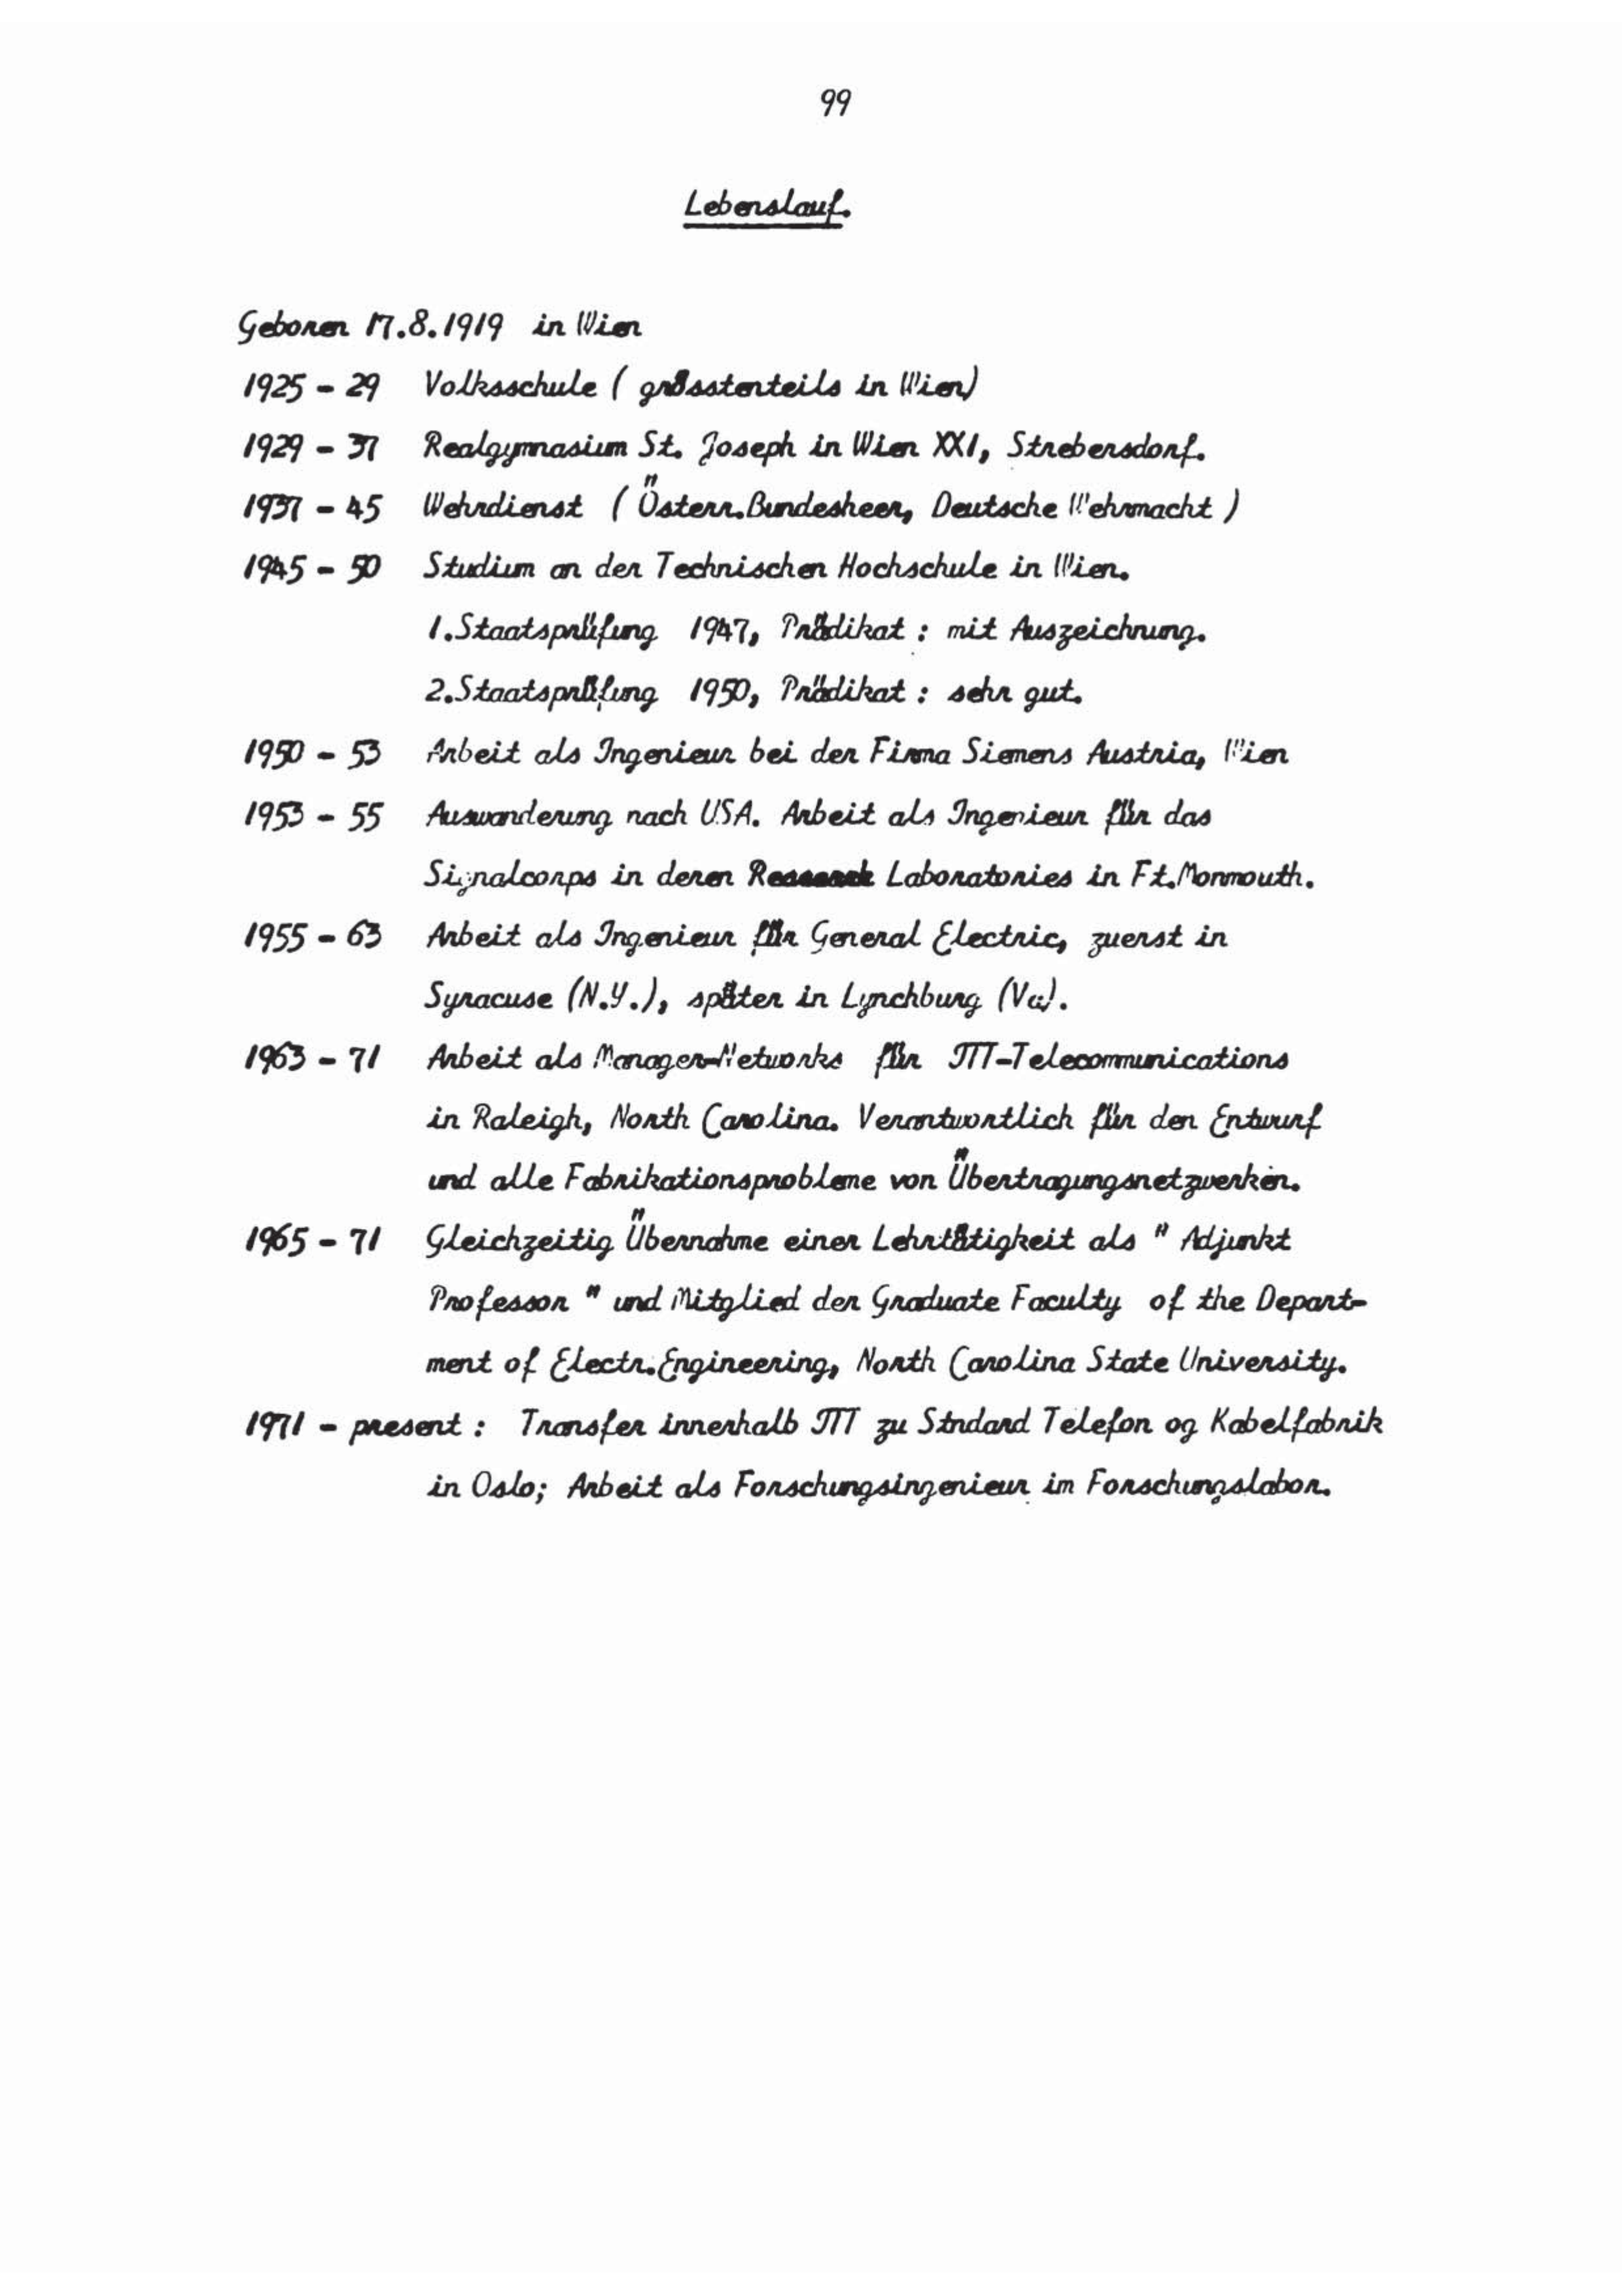 99
Lebenslauf.
Geboren 17.8.1919 in Wien
1925 - 29 Volksschule ( grösstenteils in Wien)
1929 - 37 Realgymnasium St. Joseph in Wien XXI, Strebersdorf.
1937 - 45 Wehrdienst ( Österr.Bundesheer, Deutsche Wehrmacht )
1945 - 50 Studium an der Technischen Hochschule in Wien.
1.Staatsprüfung 1947, Prädikat : mit Auszeichnung.
2.Staatsprüfung 1950, Prädikat : sehr gut.
1950 - 53 Arbeit als Ingenieur bei der Firma Siemens Austria, Wien
1953 - 55 Auswanderung nach USA. Arbeit als Ingenieur für das
Signalcorps in deren Research Laboratories in Ft.Monmouth.
1955 - 63 Arbeit als Ingenieur für General Electric, zuerst in
Syracuse (N.Y.), später in Lynchburg (Va).
1963 - 71 Arbeit als Manager-Networks für ITT-Telecommunications
in Raleigh, North Carolina. Verantwortlich für den Entwurf
und alle Fabrikationsprobleme von Übertragungsnetzwerken.
1965 - 71 Gleichzeitig Übernahme einer Lehrtätigkeit als " Adjunkt
Professor " und Mitglied der Graduate Faculty of the Depart-
ment of Electr.Engineering, North Carolina State University.
1971 - present : Transfer innerhalb ITT zu Stndard Telefon og Kabelfabrik
in Oslo; Arbeit als Forschungsingenieur im Forschungslabor.